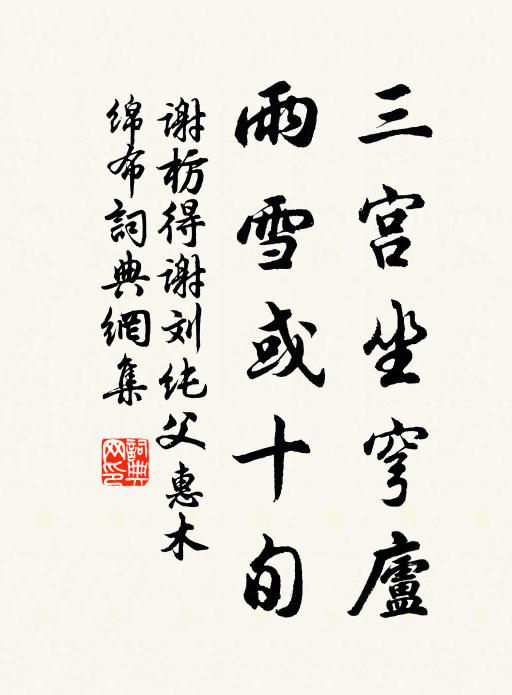 三宫坐穹廬
雨雪或十旬
谢枋得谢刘纯父惠木
绵布詞典網集
詞典网印